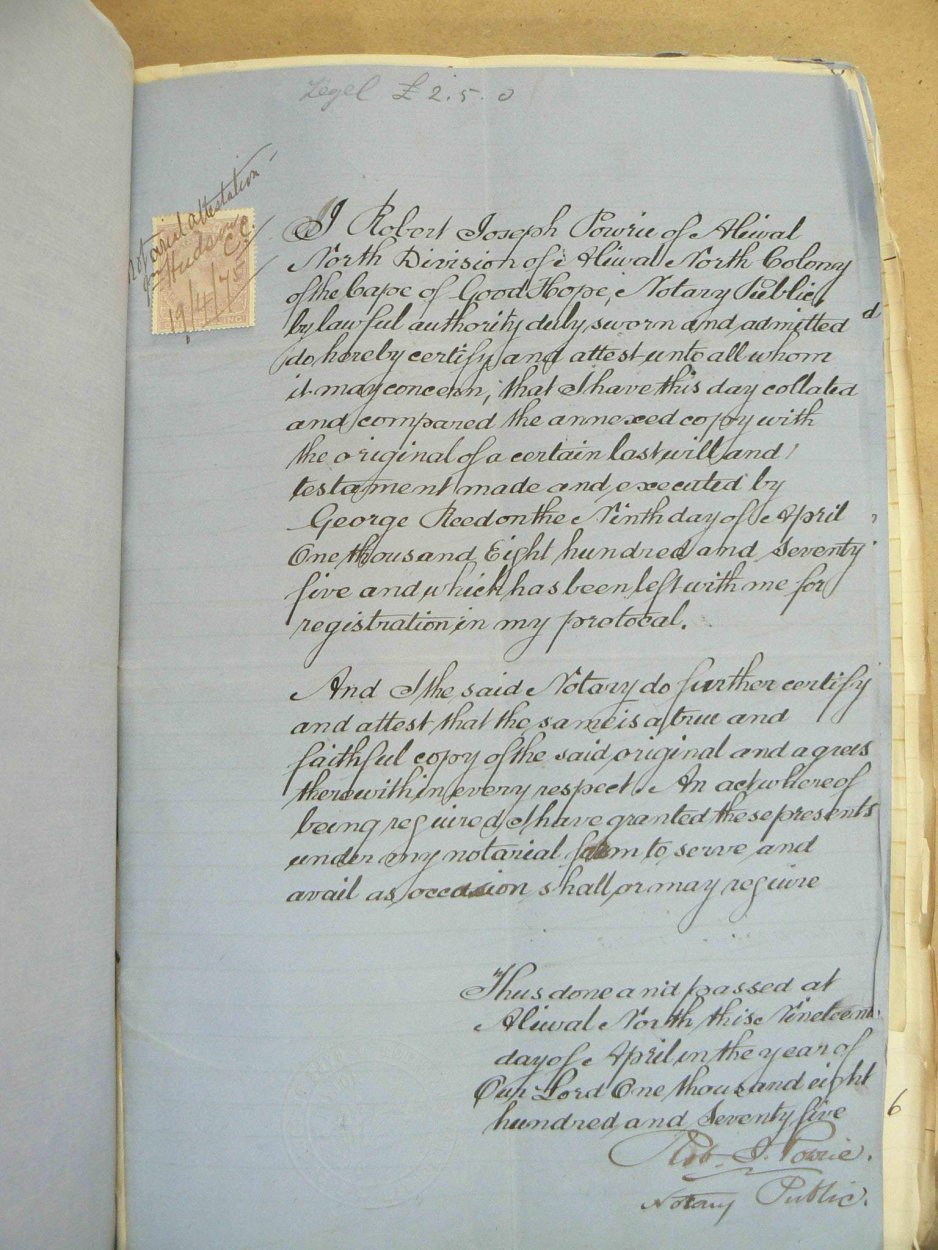 Zegel £ 2.5.0
notarial attestation
19/4/75
I Robert Joseph Powrie of Aliwal
North Division of Aliwal North Colony
of the Cape of Good Hope, Notary Public,
by lawful authority duly sworn and admitted
do hereby certify and attest unto all whom
it may concern, that I have this day collated
and compared the annexed copy with
the original of a certain last will and
testament made and executed by
George Reed on the Ninth day of April
One thousand Eight hundred and Seventy
five and which has been left with me for
registration in my protocal.
And I the said Notary do further certify
and attest that the same is a true and
faithful copy of the said original and agrees
therewith in every respect. An act whereof
being required I have granted these presents
under my notarial form to serve and
avail as occasion shall or may require
Thus done and passed at
Aliwal North this Nineteenth
day of April in the year of
Our Lord One thousand eight
hundred and Seventy five
Rob. J. Powrie.
Notary Public.
6